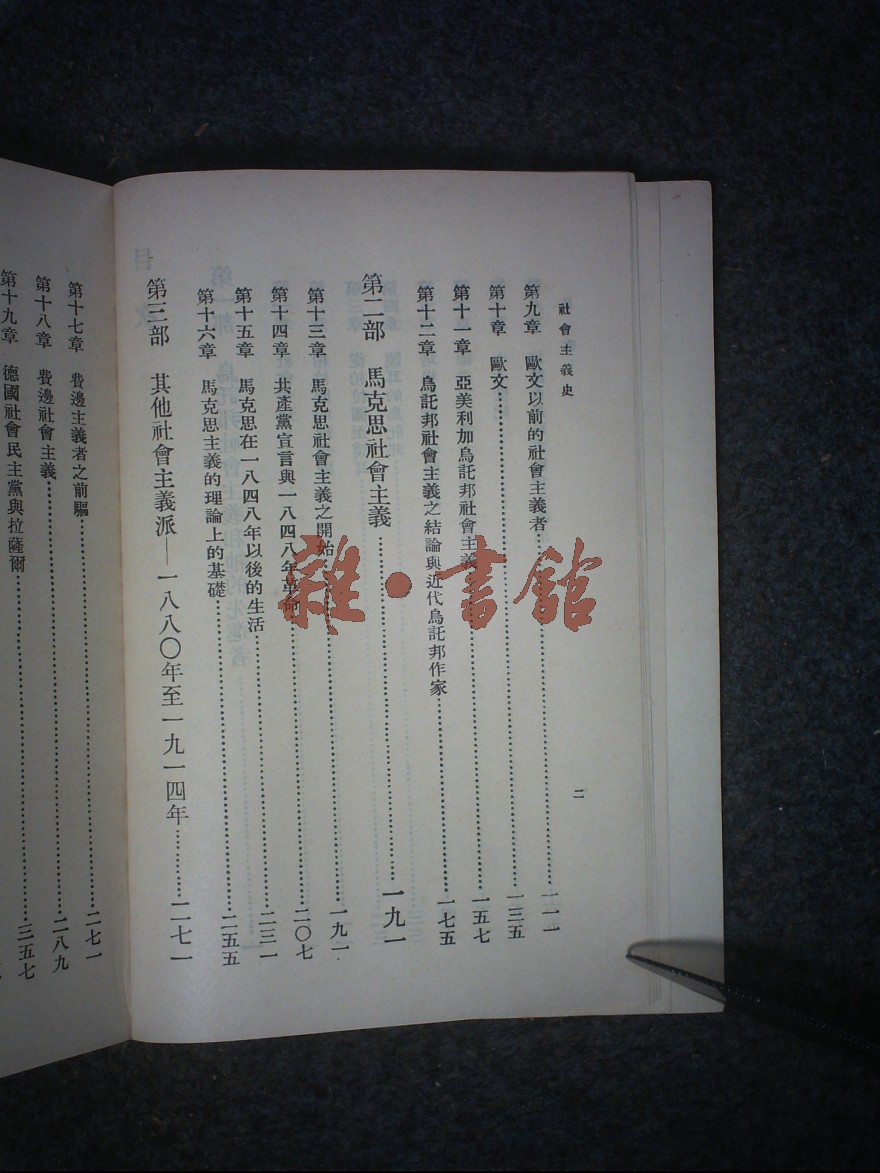 社會主義史
二
第九章 歐文以前的社會主義者……一一一
第十章 歐文……一三五
第十一章 亞美利加烏託邦社會主義……一五七
第十二章 烏託邦社會主義之結論與近代烏託邦作家……一七五
第二部 馬克思社會主義……一九一
第十三章 馬克思社會主義之開始……一九一
第十四章 共產黨宣言與一八四八年革命……二〇七
第十五章 馬克思在一八四八年以後的生活……二三一
第十六章 馬克思主義的理論上的基礎……二五五
第三部 其他社會主義派——一八八〇年至一九一四年……二七一
第十七章 費邊主義者之前驅……二七一
第十八章 費邊社會主義……二八九
第十九章 德國社會民主黨與拉薩爾……三五七
雜·書館